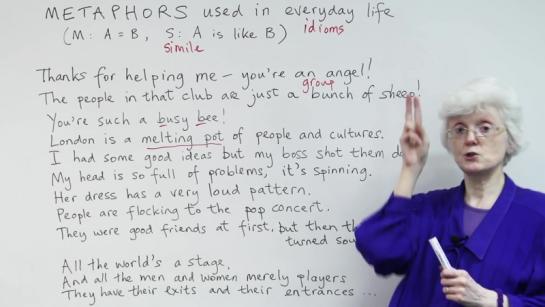 METAPHORS used in everyday life
(M: A = B, S: A is like B) idioms
simile
Thanks for helping me – you're an angel!
group
The people in that club are just a bunch of sheep!
You're such a busy bee!
London is a melting pot of people and cultures.
I had some good ideas but my boss shot them
My head is so full of problems, it's spinning.
Her dress has a very loud pattern.
People are flocking to the pop concert.
They were good friends at first, but then
turned
All the world's a stage,
And all the men and women merely players
They have their exits and their entrances ...